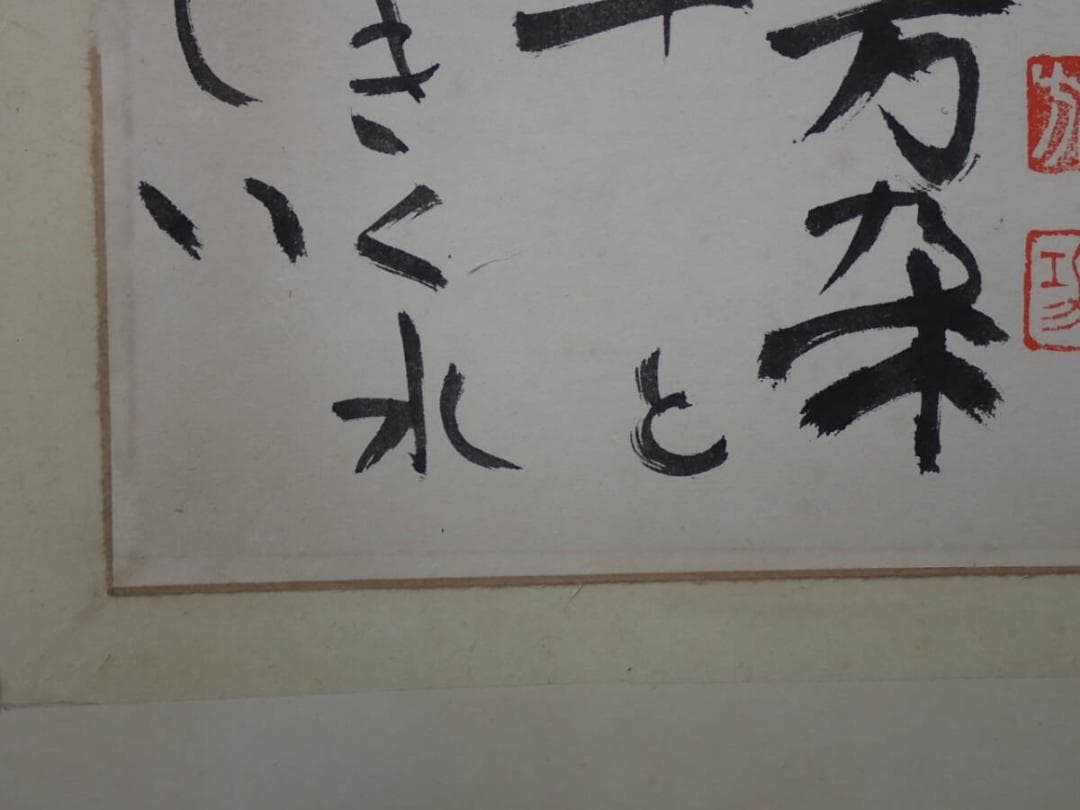 万朶
と
きく水
しい